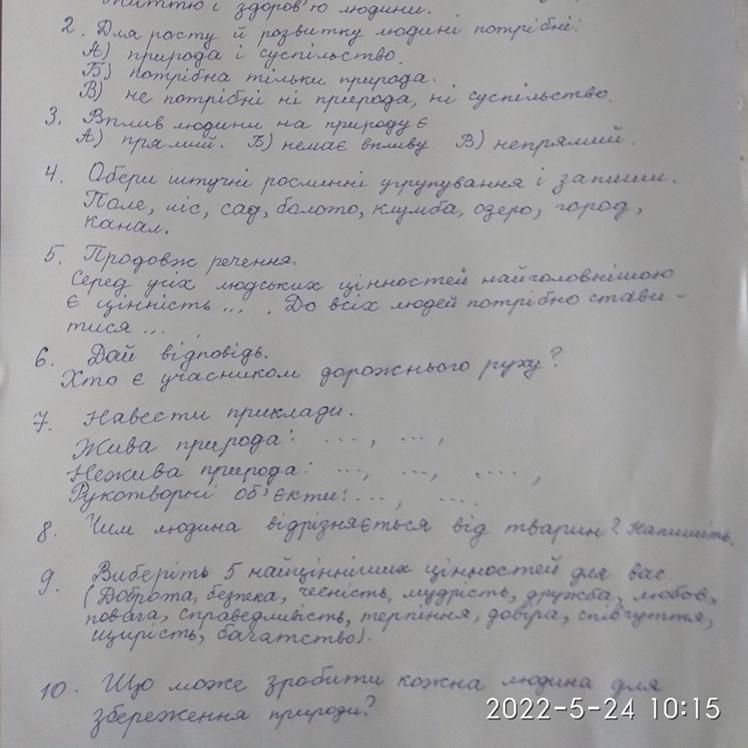 життю і здоров'ю людини.
2. Для росту й розвитку людині потрібні:
А) природа і суспільство.
Б) потрібна тільки природа.
В) не потрібні ні природа, ні суспільство.
3. Вплив людини на природу є
А) прямий. Б) немає впливу. В) непрямий.
4. Обери штучні рослинні угрупування і запиши.
Поле, ліс, сад, болото, клумба, озеро, город,
канал.
5. Продовж речення.
Серед усіх людських цінностей найголовнішою
є цінність ... . До всіх людей потрібно стави-
тися ...
6. Дай відповідь.
Хто є учасником дорожнього руху?
7. Навести приклади.
Жива природа: ..., ...,
Нежива природа: ..., ..., ....,
Рукотворні об'єкти: ..., ...
8. Чим людина відрізняється від тварин? Напишіть.
9. Виберіть 5 найцінніших цінностей для вас.
(Доброта, безпека, чесність, мудрість, дружба, любов,
повага, справедливість, терпіння, довіра, співчуття,
щирість, багатство).
10. Що може зробити кожна людина для
збереження природи?
2022-5-24 10:15